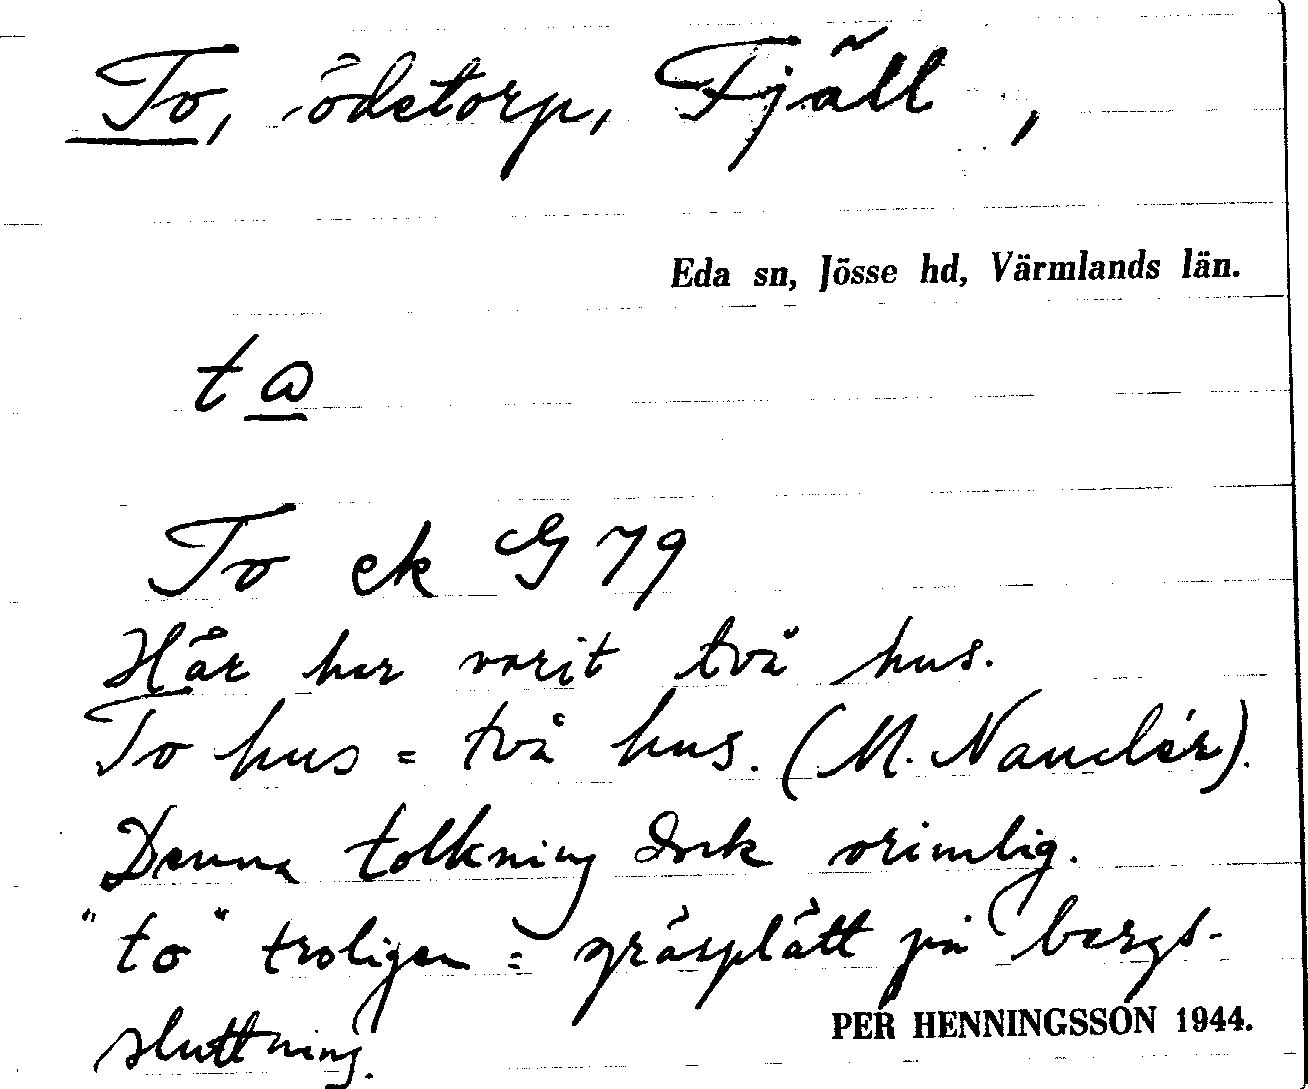 To, ödetorp, Fjäll,
Eda sn, Jösse hd, Värmlands län.
To ek G 79
Här har varit två hus.
To hus = två hus. (M. Nauclér).
Denna tolkning dock orimlig.
"to" troligen = gräsplätt på bergs-
sluttning.
PER HENNINGSSON 1944.